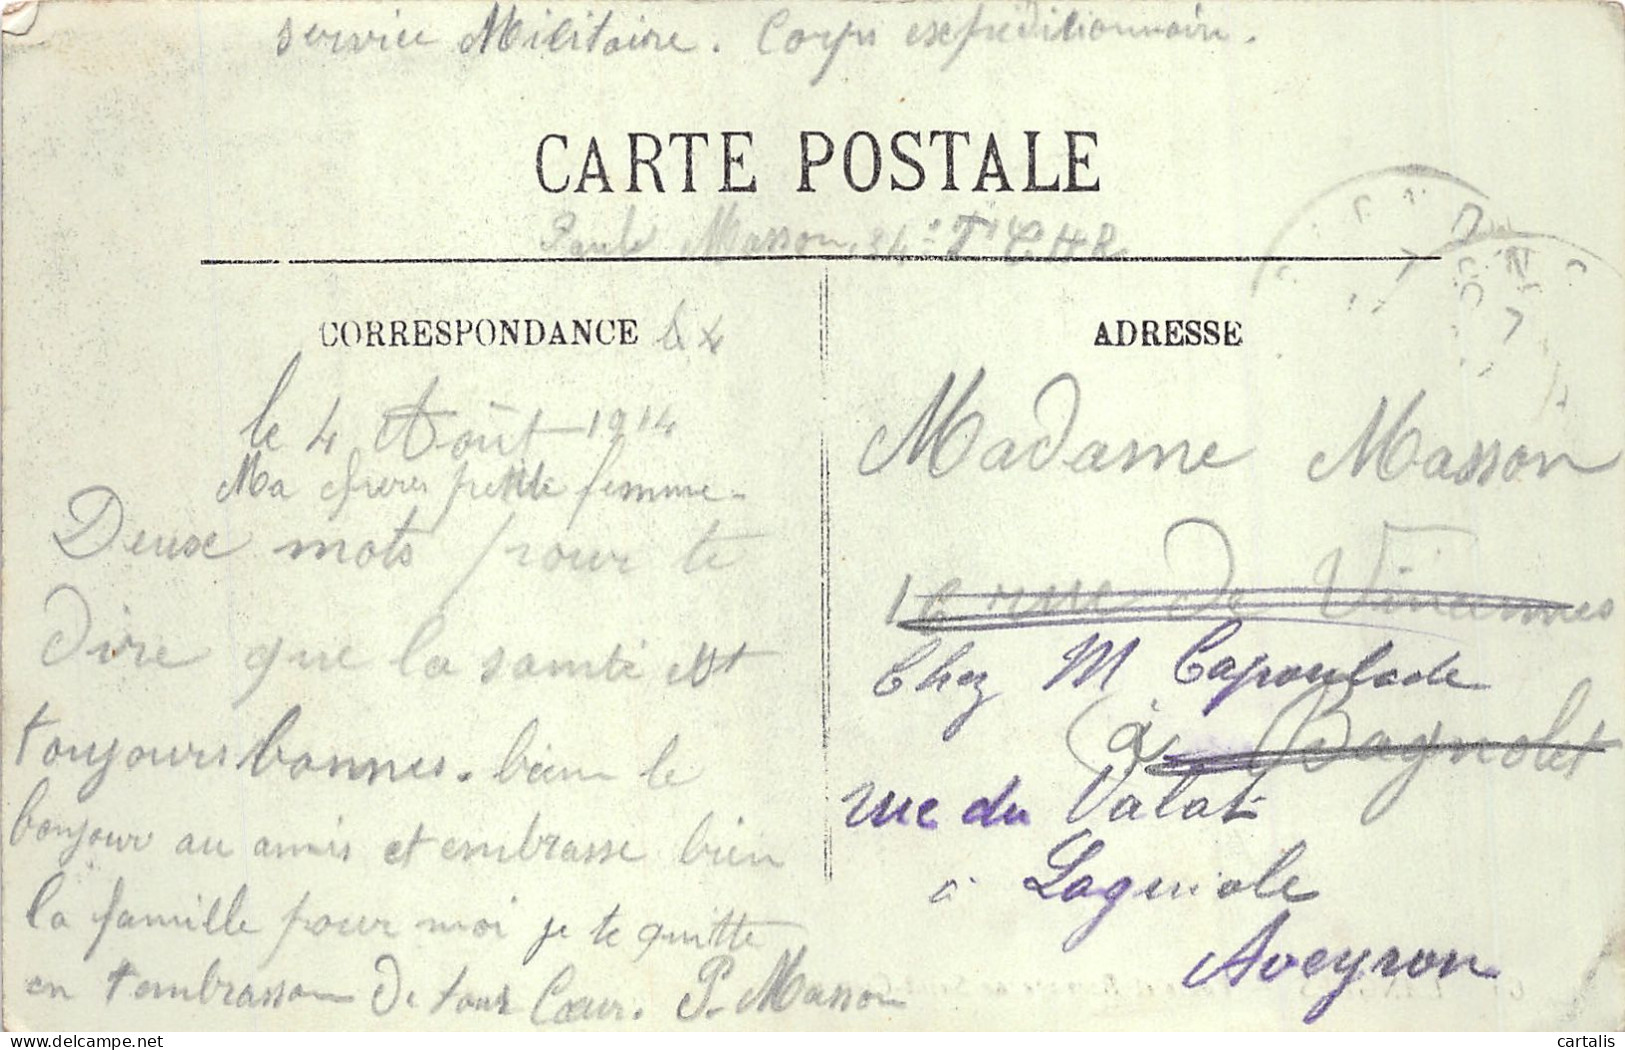 service Militaire. Corps expéditionnaire.
CARTE POSTALE
Paul Masson, 34e T C H R.
CORRESPONDANCE
ADRESSE
le 4 Août 1914
Ma chère petite femme.
Deux mots pour te
dire que la santé est
toujours bonnes. bien le
bonjour au amis et embrasse bien
la famille pour moi je te quitte
en t'embrassan de tous Cœur. P. Masson
Madame Masson
16 rue de Vincennes
Chez M Capoulade
à Bagnolet
rue du Valat
à Laguiole
Aveyron
cartalis
delcampe.net